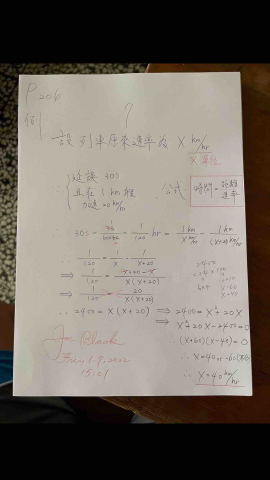 P206
例
?
設列車原來速率為 X km/hr
X 單位
∵ { 延誤 30S
且在 1 km 程
加速 20 km/hr
∴ 公式 時間 = 距離/速率
∴ 30S = 30/(60×60) = 1/120 hr = 1km/(X km/hr) - 1km/((X+20) km/hr)
∴ 1/120 = 1/X - 1/(X+20)
⇒ 1/120 = (X+20-X)/(X(X+20))
⇒ 1/120 = 20/(X(X+20))
∴ 2400 = X(X+20) ⇒ 2400 = X²+20X
⇒ X²+20X-2400=0
∴ (X+60)(X-40)=0
∴ X=40 or -60
∴ X=40 km/hr
Joe Black
15:01